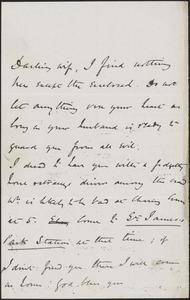 Darling wife, I find nothing
here except the enclosed. Do not
let anything vex your heart as
long as your husband is ready to
guard you from all evil.
I dread to leave you with a fidgetty
horse outrageous driver among the crowd
wh. is likely to be bad at Charing Cross
at 5. come to St James's
Park Station at that time; if
I don't find you there I will come
home. God bless you